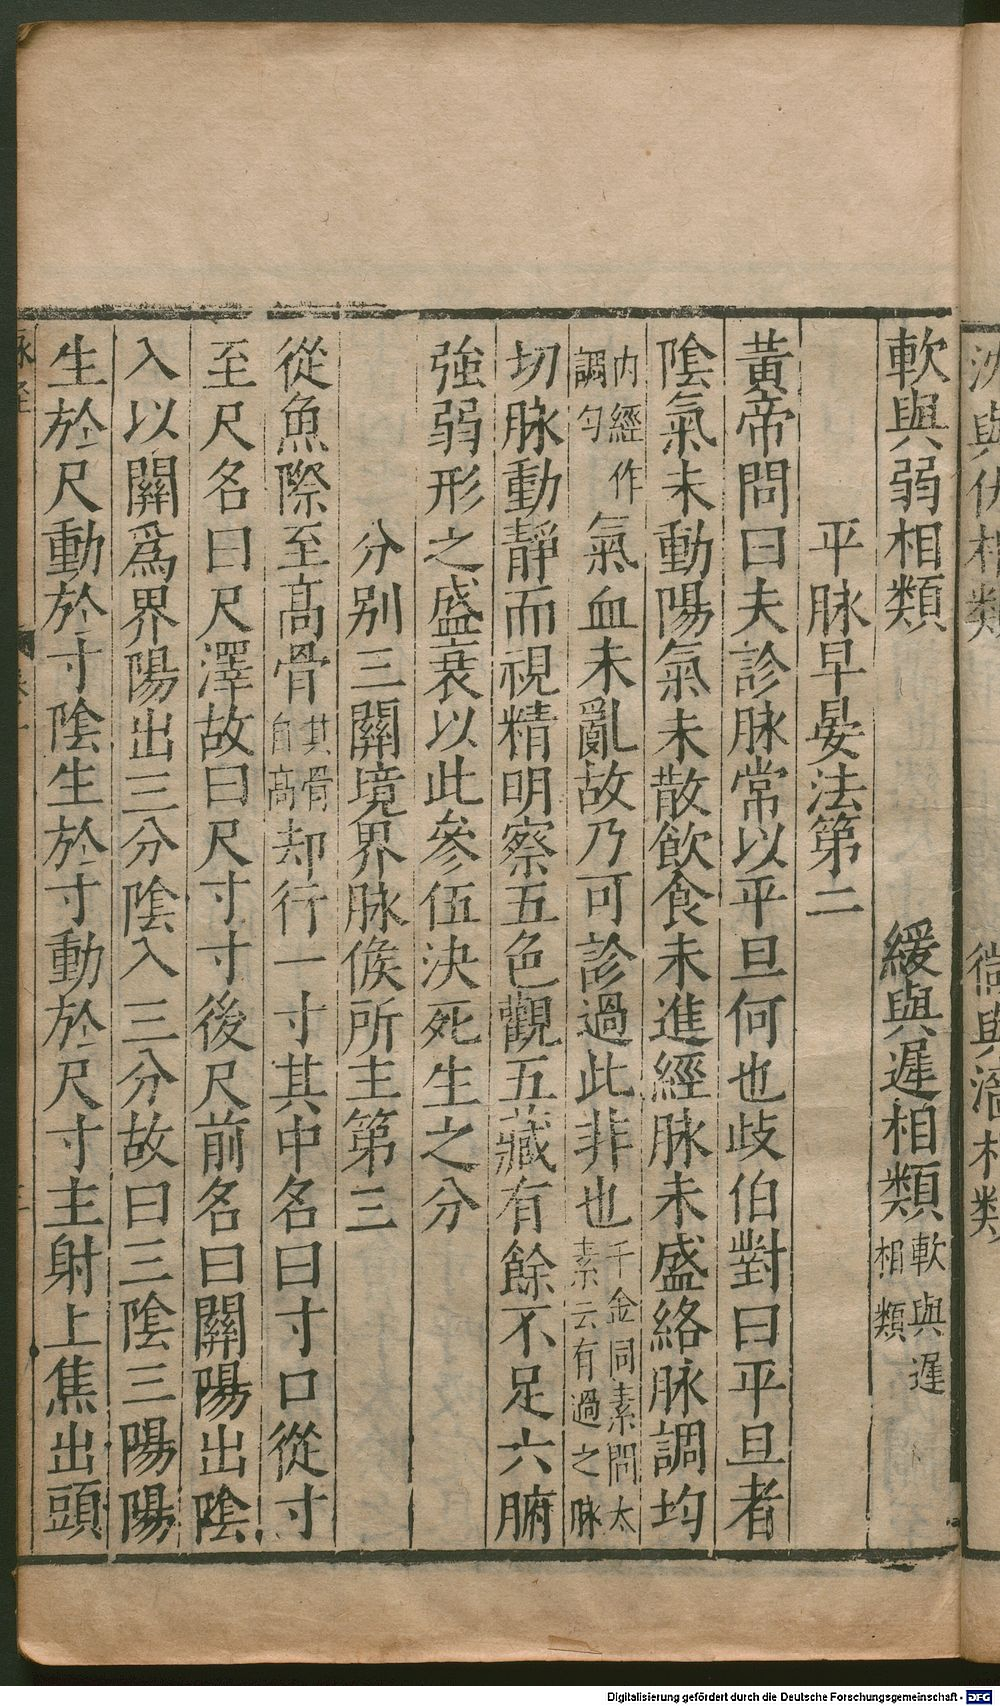 沈與伏相類 微與澁相類
軟與弱相類 緩與遲相類 軟與遲相類
平脉早晏法第二
黃帝問曰夫診脉常以平旦何也歧伯對曰平旦者
陰氣未動陽氣未散飲食未進經脉未盛絡脉調均
内經作調勻氣血未亂故乃可診過此非也千金同素問太素云有過之脉
切脉動靜而視精明察五色觀五藏有餘不足六腑
強弱形之盛衰以此參伍決死生之分
分別三關境界脉候所主第三
從魚際至高骨其骨自高却行一寸其中名曰寸口從寸
至尺名曰尺澤故曰尺寸寸後尺前名曰關陽出陰
入以關爲界陽出三分陰入三分故曰三陰三陽陽
生於尺動於寸陰生於寸動於尺寸主射上焦出頭
脉經
Digitalisierung gefördert durch die Deutsche Forschungsgemeinschaft - DFG